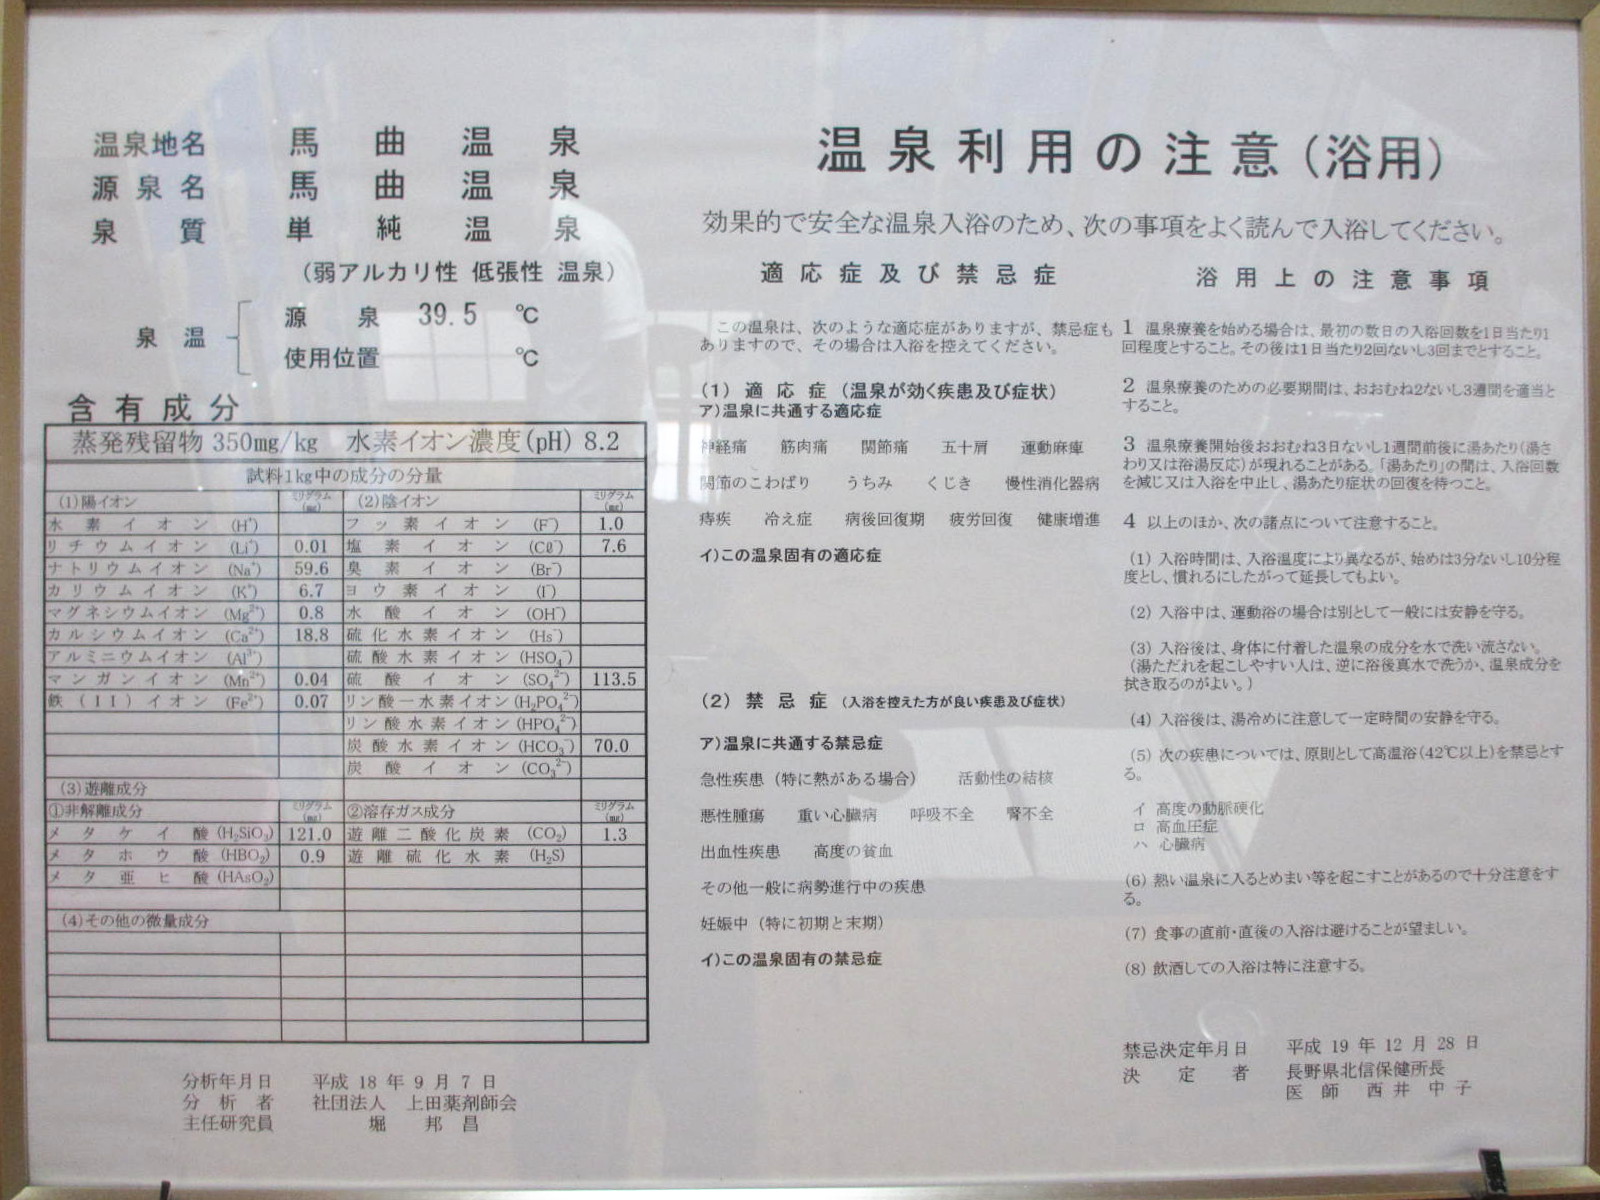 温泉地名 馬曲温泉
源泉名 馬曲温泉
泉質 単純温泉
(弱アルカリ性 低張性 温泉)
泉温
源泉 39.5 ℃
使用位置 ℃
含有成分
蒸発残留物 350mg/kg 水素イオン濃度(pH) 8.2
試料1kg中の成分の分量
(1)陽イオン ミリグラム(mg) (2)陰イオン ミリグラム(mg)
水素イオン (H⁺) フッ素イオン (F⁻) 1.0
リチウムイオン (Li⁺) 0.01 塩素イオン (Cℓ⁻) 7.6
ナトリウムイオン (Na⁺) 59.6 臭素イオン (Br⁻)
カリウムイオン (K⁺) 6.7 ヨウ素イオン (I⁻)
マグネシウムイオン (Mg²⁺) 0.8 水酸イオン (OH⁻)
カルシウムイオン (Ca²⁺) 18.8 硫化水素イオン (Hs⁻)
アルミニウムイオン (Al³⁺) 硫酸水素イオン (HSO₄⁻)
マンガンイオン (Mn²⁺) 0.04 硫酸イオン (SO₄²⁻) 113.5
鉄(II)イオン (Fe²⁺) 0.07 リン酸一水素イオン (H₂PO₄²⁻)
リン酸水素イオン (HPO₄²⁻)
炭酸水素イオン (HCO₃⁻) 70.0
炭酸イオン (CO₃²⁻)
(3)遊離成分
①非解離成分 ミリグラム(mg) ②溶存ガス成分 ミリグラム(mg)
メタケイ酸 (H₂SiO₃) 121.0 遊離二酸化炭素 (CO₂) 1.3
メタホウ酸 (HBO₂) 0.9 遊離硫化水素 (H₂S)
メタ亜ヒ酸 (HAsO₂)
(4)その他の微量成分
分析年月日 平成 18 年 9 月 7 日
分析者 社団法人 上田薬剤師会
主任研究員 堀 邦昌
温泉利用の注意(浴用)
効果的で安全な温泉入浴のため、次の事項をよく読んで入浴してください。
適応症及び禁忌症
この温泉は、次のような適応症がありますが、禁忌症も
ありますので、その場合は入浴を控えてください。
(1) 適応症 (温泉が効く疾患及び症状)
ア)温泉に共通する適応症
神経痛 筋肉痛 関節痛 五十肩 運動麻痺
関節のこわばり うちみ くじき 慢性消化器病
痔疾 冷え症 病後回復期 疲労回復 健康増進
イ)この温泉固有の適応症
(2) 禁忌症 (入浴を控えた方が良い疾患及び症状)
ア)温泉に共通する禁忌症
急性疾患 (特に熱がある場合) 活動性の結核
悪性腫瘍 重い心臓病 呼吸不全 腎不全
出血性疾患 高度の貧血
その他一般に病勢進行中の疾患
妊娠中 (特に初期と末期)
イ)この温泉固有の禁忌症
浴用上の注意事項
1 温泉療養を始める場合は、最初の数日の入浴回数を1日当たり1
回程度とすること。その後は1日当たり2回ないし3回までとすること。
2 温泉療養のための必要期間は、おおむね2ないし3週間を適当と
すること。
3 温泉療養開始後おおむね3日ないし1週間前後に湯あたり(湯さ
わり又は浴湯反応)が現れることがある。「湯あたり」の間は、入浴回数
を減じ又は入浴を中止し、湯あたり症状の回復を待つこと。
4 以上のほか、次の諸点について注意すること。
(1) 入浴時間は、入浴温度により異なるが、始めは3分ないし10分程
度とし、慣れるにしたがって延長してもよい。
(2) 入浴中は、運動浴の場合は別として一般には安静を守る。
(3) 入浴後は、身体に付着した温泉の成分を水で洗い流さない。
(湯ただれを起こしやすい人は、逆に浴後真水で洗うか、温泉成分を
拭き取るのがよい。)
(4) 入浴後は、湯冷めに注意して一定時間の安静を守る。
(5) 次の疾患については、原則として高温浴(42℃以上)を禁忌とす
る。
イ 高度の動脈硬化
ロ 高血圧症
ハ 心臓病
(6) 熱い温泉に入るとめまい等を起こすことがあるので十分注意をす
る。
(7) 食事の直前・直後の入浴は避けることが望ましい。
(8) 飲酒しての入浴は特に注意する。
禁忌決定年月日 平成 19 年 12 月 28 日
決定者 長野県北信保健所長
医師 西井 中子